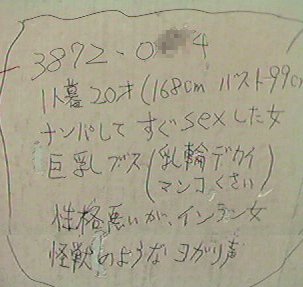 3872-0 4
1人暮20才(168cm バスト99cm
ナンパしてすぐsexした女
巨乳ブス(乳輪デカイ
マンコくさい)
性格悪いが、インラン女
怪獣のようなヨガリ声